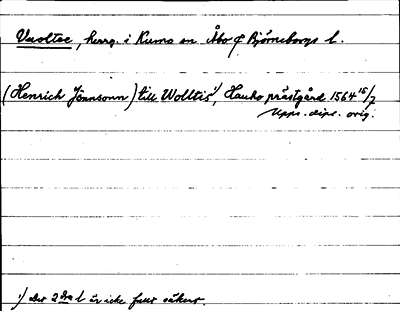 Vuoltee, herrg. i Kumo sn. Åbo & Björneborgs l.
(Henrich Jönnsonn) till Wolltis¹), Hauho prästgård 1564 15/7
Upps. dipl. orig.
¹) Det 2dra l är icke fullt säkert.